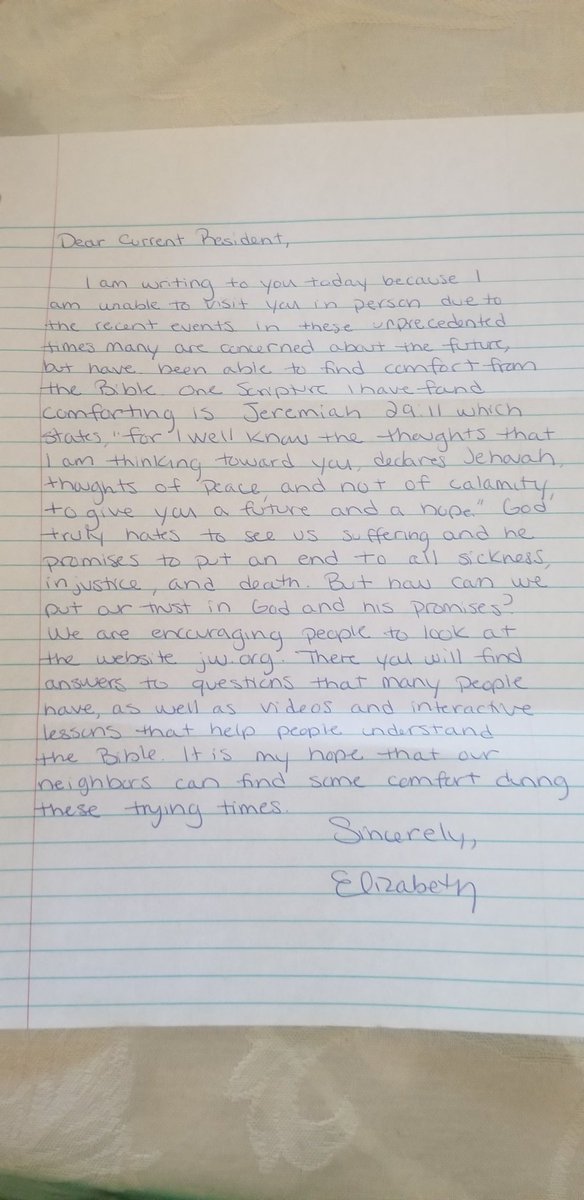 Dear Current Resident,
I am writing to you today because I
am unable to visit you in person due to
the recent events in these unprecedented
times many are concerned about the future,
but have been able to find comfort from
the Bible. One Scripture I have fand
comforting is Jeremiah 29:11 which
states, "for I well know the thoughts that
I am thinking toward you, declares Jehovah,
thoughts of peace, and not of calamity,
to give you a future and a hope." God
truly hates to see us suffering and he
promises to put an end to all sickness,
injustice, and death. But how can we
put our trust in God and his promises?
We are encouraging people to look at
the website jw.org. There you will find
answers to questions that many people
have, as well as videos and interactive
lessons that help people understand
the Bible. It is my hope that our
neighbors can find some comfort during
these trying times.
Sincerely,
Elizabeth